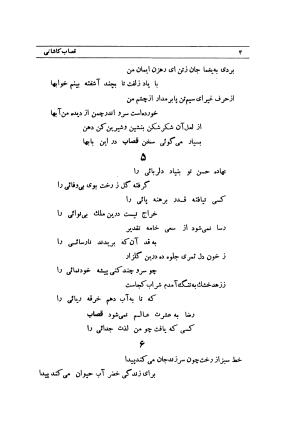 ۴ قصاب کاشانی
بردی به‌یغما جان ز تن ای رهزن ایمان من
با یاد زلفت تا بچند آشفته بینم خوابها
از حرف غیر ای سیم‌تن پا بر مدار از چشم من
خورده‌است سرو اندر چمن از دیده من آبها
از لعل آن شکر شکن بنشین و شیرین کن دهن
بسیار می‌گوئی سخن قصاب در این بابها
۵
نهاده حسن تو بنیاد دلربائی را
گرفته گل ز رخت بوی بی‌وفائی را
کسی نیافته قدر برهنه پائی را
خراج نیست در این ملک بی‌نوائی را
رسا نمی‌شود از سعی خامه تقدیر
به قد آن که بریدند نارسائی را
ز خون دل ثمری جلوه ده در این گلزار
چو سرو چند کنی پیشه خودنمائی را
ز زهد خشک به‌تنگ آمدم شراب کجاست
که تا به‌آب دهم خرقه ریائی را
رضا به عشرت عالم نمی‌شود قصاب
کسی که یافت چو من لذت جدائی را
۶
خط سبز از رخت چون سر زند جان می‌کند پیدا
برای زندگی خضر آب حیوان می‌کند پیدا